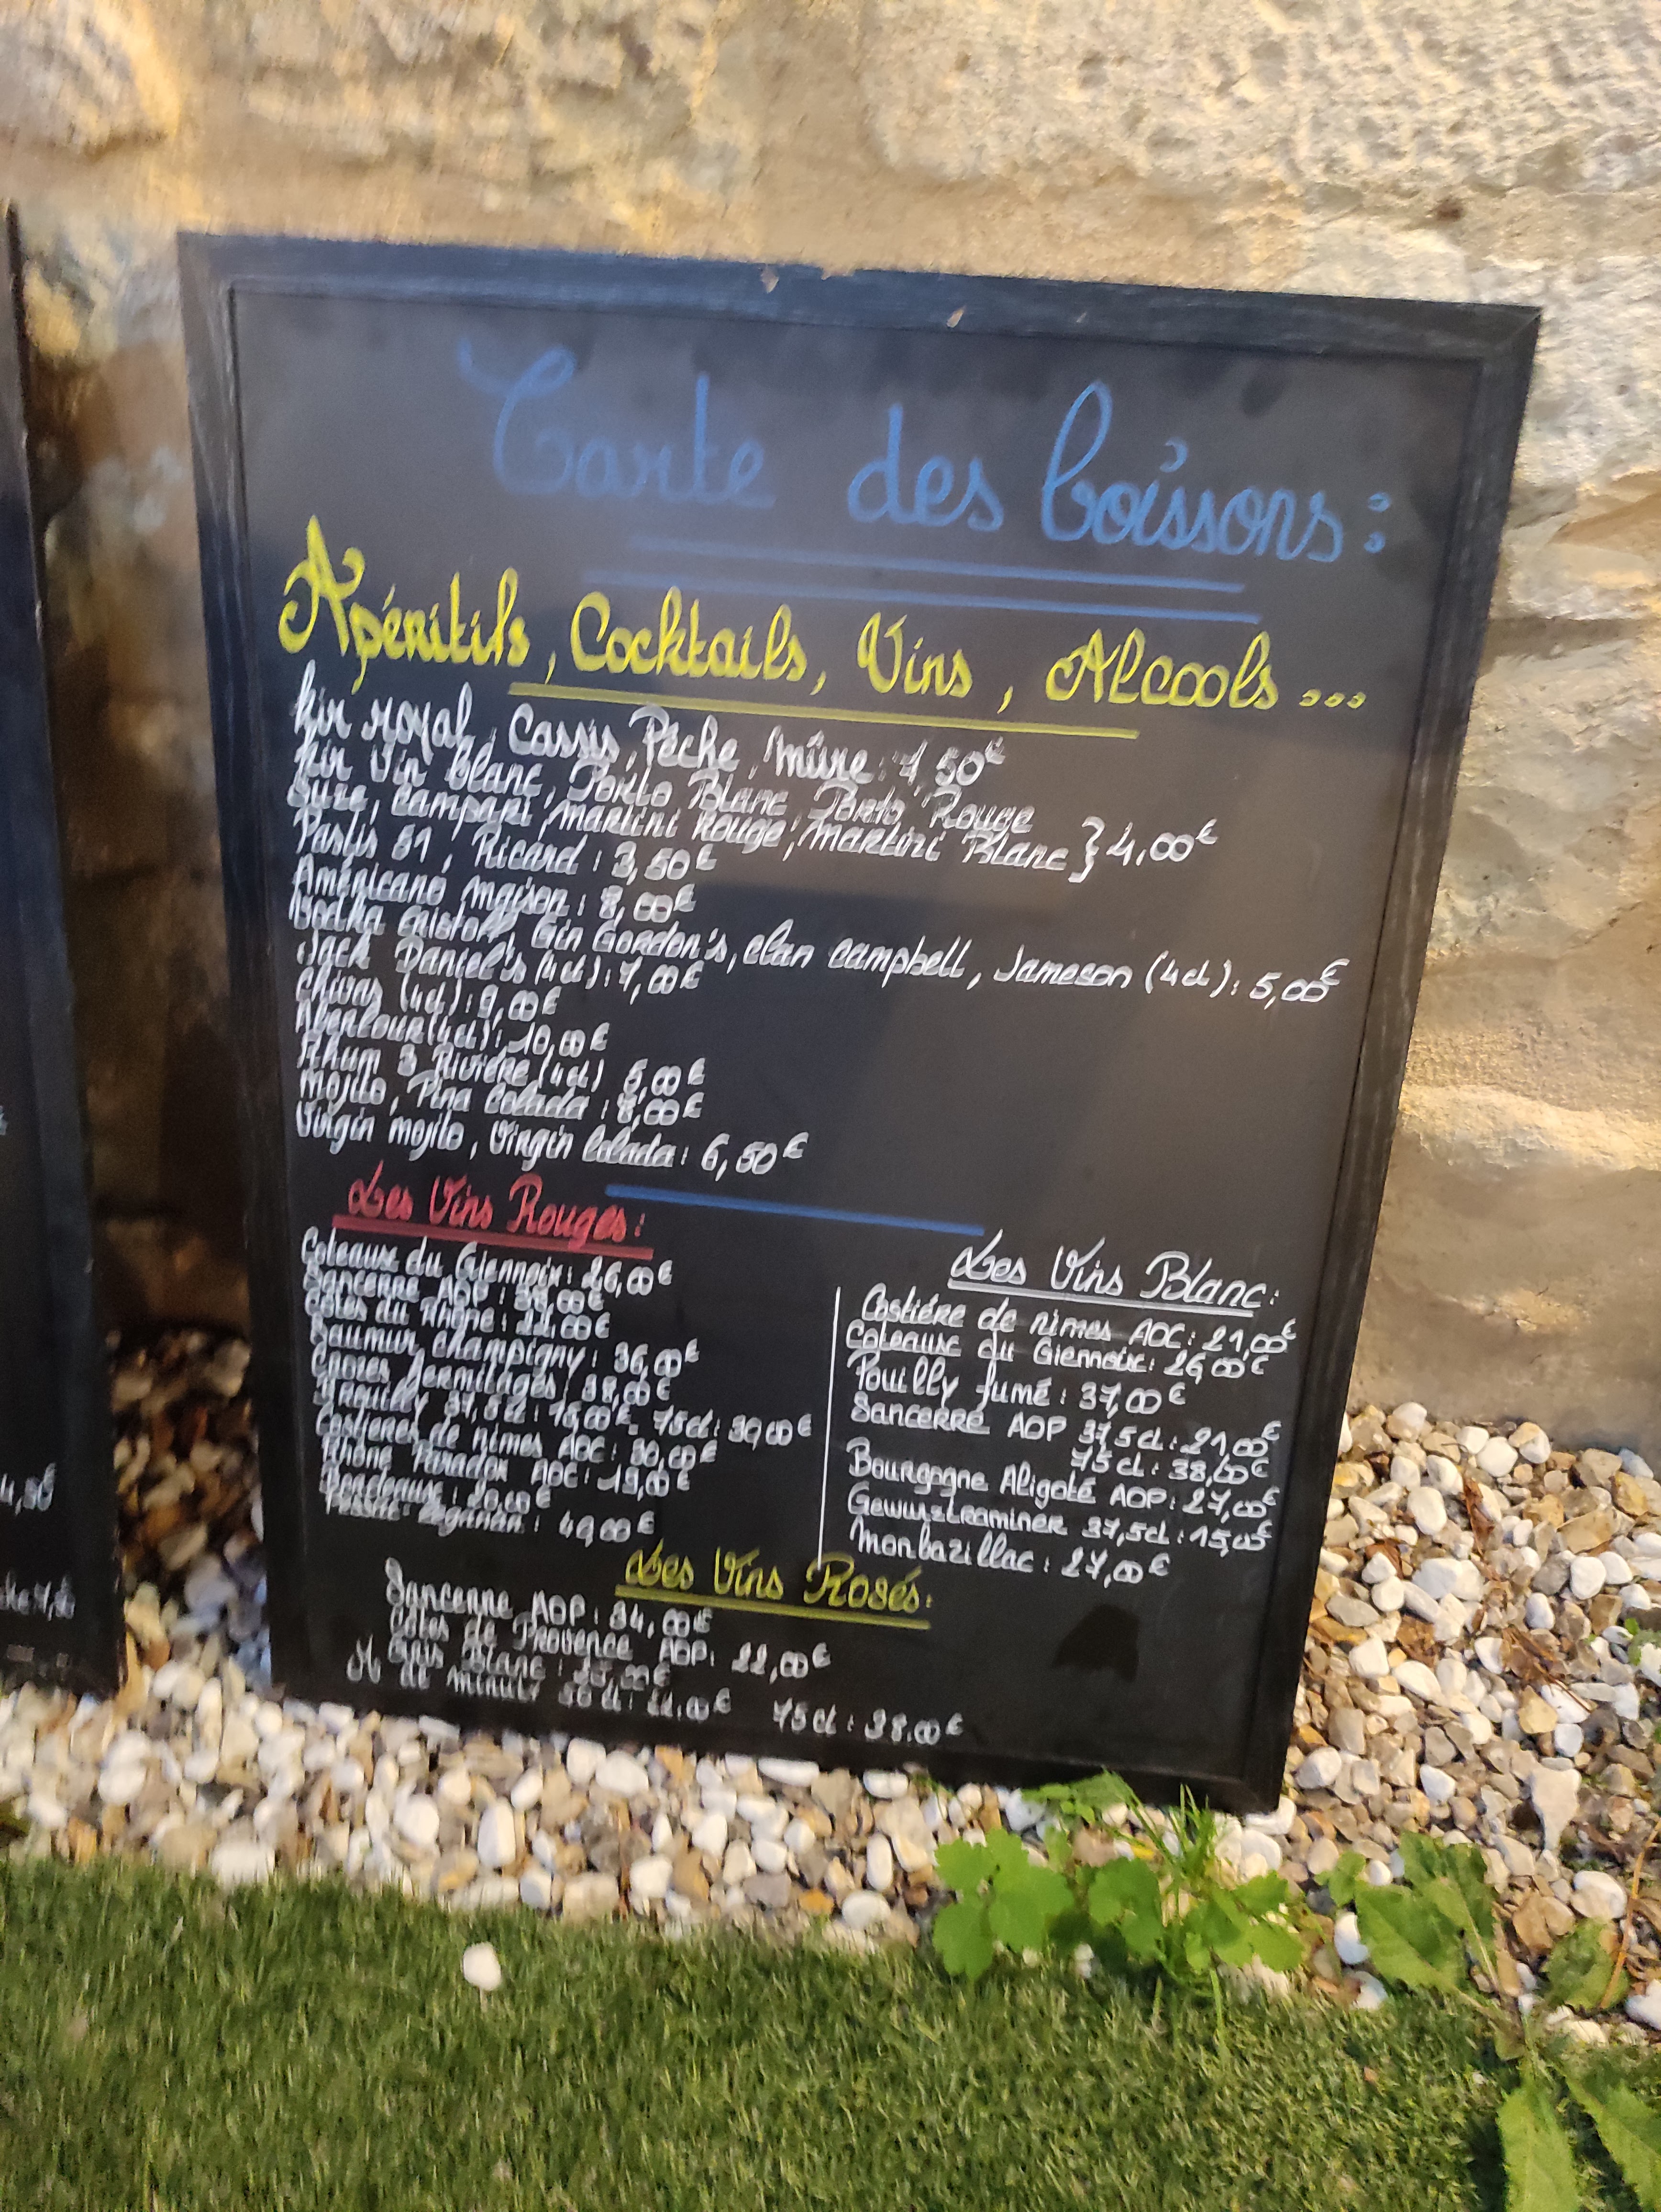 Carte des boissons :
Apéritifs, Cocktails, Vins, Alcools ...
Kir royal, Cassis, Pêche, Mûre : 7,50€
Kir Vin Blanc, Porto Blanc, Porto Rouge
Suze, Campari, Martini Rouge, Martini Blanc } 4,00€
Pastis 51, Ricard : 3,50€
Américano maison : 8,00€
Vodka Eristoff, Gin Gordon's, Clan Campbell, Jameson (4cl) : 5,00€
Jack Daniel's (4cl) : 7,00€
Chivas (4cl) : 9,00€
Aberlour (4cl) : 10,00€
Rhum 3 Rivière (4cl) 5,00€
Mojito, Pina Colada : 8,00€
Virgin mojito, Virgin Colada : 6,50€
Les Vins Rouges :
Coteaux du Giennois : 26,00€
Sancerre AOP :
Côtes du Rhône : 22,00€
Saumur Champigny : 36,00€
Crozes Hermitages : 38,00€
37,5cl : 75cl : 39,00€
Costières de nimes AOC : 30,00€
Rhône Paradox AOC : 19,00€
Bordeaux : 20,00€
Pessac Léognan : 49,00€
Les Vins Blanc :
Costière de nimes AOC : 21,00€
Coteaux du Giennois : 26,00€
Pouilly fumé : 37,00€
Sancerre AOP 37,5cl : 21,00€
75cl : 38,00€
Bourgogne Aligoté AOP : 27,00€
Gewurztraminer 37,5cl : 15,00€
Monbazillac : 27,00€
Les Vins Rosés :
Sancerre AOP : 34,00€
Côtes de Provence AOP : 22,00€
Gris Blanc :
M de minuty 50cl : 22,00€ 75cl : 38,00€